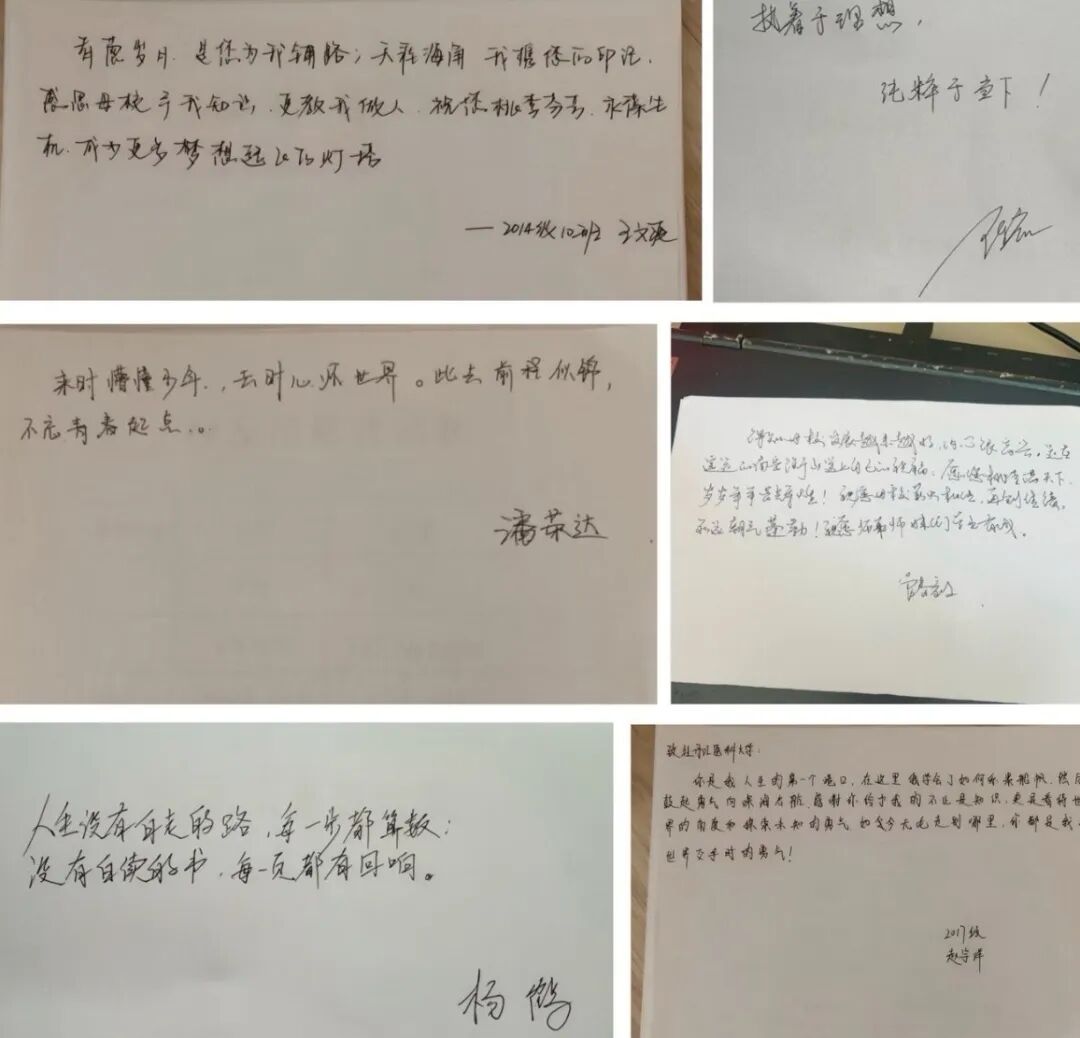 青葱岁月，是您为我铺路；天涯海角，我携您的印记.
感恩母校予我知识，更教我做人.祝您桃李芬芳，永葆生
机.成为更多梦想起飞的灯塔
——2014级10班 王文
执着于理想，
纯粹于当下！
来时懵懂少年，去时心怀世界。此去前程似锦，
不忘青春起点。
潘荣达
得知母校发展越来越好，内心很高兴，
岁岁年年
朝气蓬勃！祝愿 师妹们学业有成。
人生没有白走的路，每一步都算数；
没有白读的书，每一页都有回响。
杨鹤
致牡丹江医科大学：
你是我人生的第一个港口，在这里我学会了如何 船帆，然后
鼓起勇气向深海右航.感谢你给予我的不止是知识，更是看待世
界的角度和探索未知的勇气 如今无论走到哪里，你都是我
世界交手时的勇气！
2017级
赵宇洋